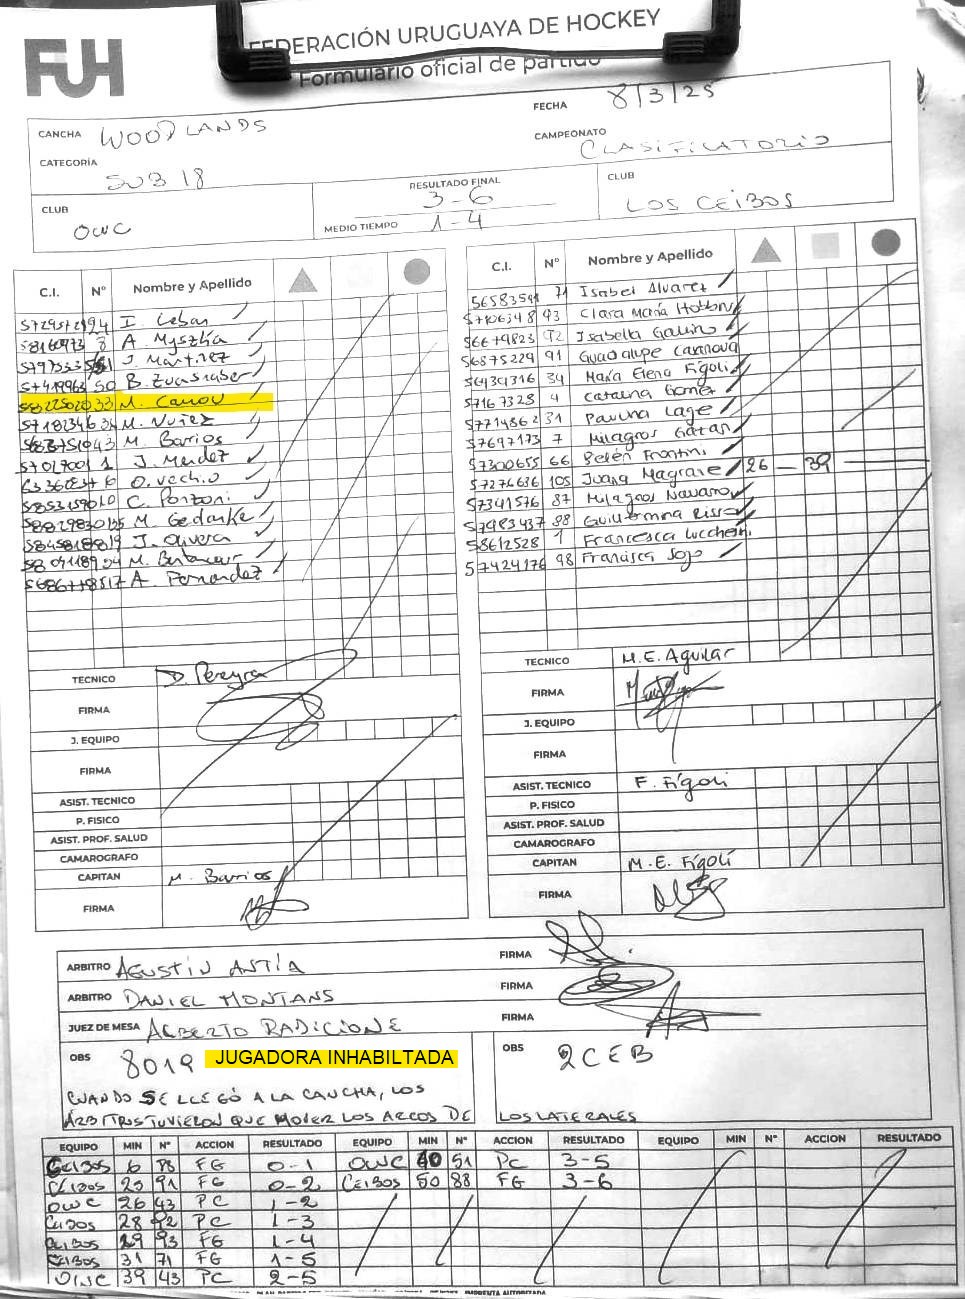 FEDERACIÓN URUGUAYA DE HOCKEY
Formulario oficial de partido
FUH
FECHA 8/3/25
CANCHA WOODLANDS
CAMPEONATO CLASIFICATORIO
CATEGORÍA SUB 18
RESULTADO FINAL 3-6
MEDIO TIEMPO 1-4
CLUB OWC
CLUB LOS CEIBOS
C.I. Nº Nombre y Apellido
I. Ceban
A. Myszka
J. Martinez
50 B. Zuasnabar
33 M. Canou
M. Nuñez
43 M. Barrios
1 J. Mendez
O. Vechio
C. Ponzoni
M. Gedanke
J. Olivera
M. Betancur
17 A. Fernandez
C.I. Nº Nombre y Apellido
71 Isabel Alvarez
57106348 93 Clara María
56679823 92 Isabella Gallino
56375229 91 Guadalupe Casanova
56434316 34 María Elena Figoli
57167328 4 Catalina Gomez
57714862 31 Paulina Lage
57697173 7 Milagros
57300655 66 Belén Frontini
57276636 105 Juana Magrane 26 — 39 —
57341576 87 Milagros Navarro
57983437 88 Guillermina Risso
58612528 1 Francesca Lucchesi
57424176 98 Francisca Sojo
TECNICO D. Pereyra
FIRMA
J. EQUIPO
FIRMA
ASIST. TECNICO
P. FISICO
ASIST. PROF. SALUD
CAMAROGRAFO
CAPITAN M. Barrios
FIRMA
TECNICO M.E. Aguilar
FIRMA
J. EQUIPO
FIRMA
ASIST. TECNICO F. Fígoli
P. FISICO
ASIST. PROF. SALUD
CAMAROGRAFO
CAPITAN M.E. Fígoli
FIRMA
ARBITRO AGUSTIN ANTÍA FIRMA
ARBITRO DANIEL MONTANS FIRMA
JUEZ DE MESA ALBERTO RADICIONE FIRMA
OBS 8019 JUGADORA INHABILTADA
OBS 2CEB
CUANDO SE LLEGÓ A LA CANCHA, LOS
ÁRBITROS TUVIERON QUE MOVER LOS ARCOS DE LOS LATERALES
EQUIPO MIN Nº ACCION RESULTADO EQUIPO MIN Nº ACCION RESULTADO EQUIPO MIN Nº ACCION RESULTADO
CEIBOS 6 98 FG 0-1 OWC 40 51 PC 3-5
CEIBOS 25 91 FG 0-2 CEIBOS 50 88 FG 3-6
OWC 26 43 PC 1-2
CEIBOS 28 92 PC 1-3
CEIBOS 29 93 FG 1-4
CEIBOS 31 71 FG 1-5
OWC 39 43 PC 2-5
IMPRENTA AUTORIZADA